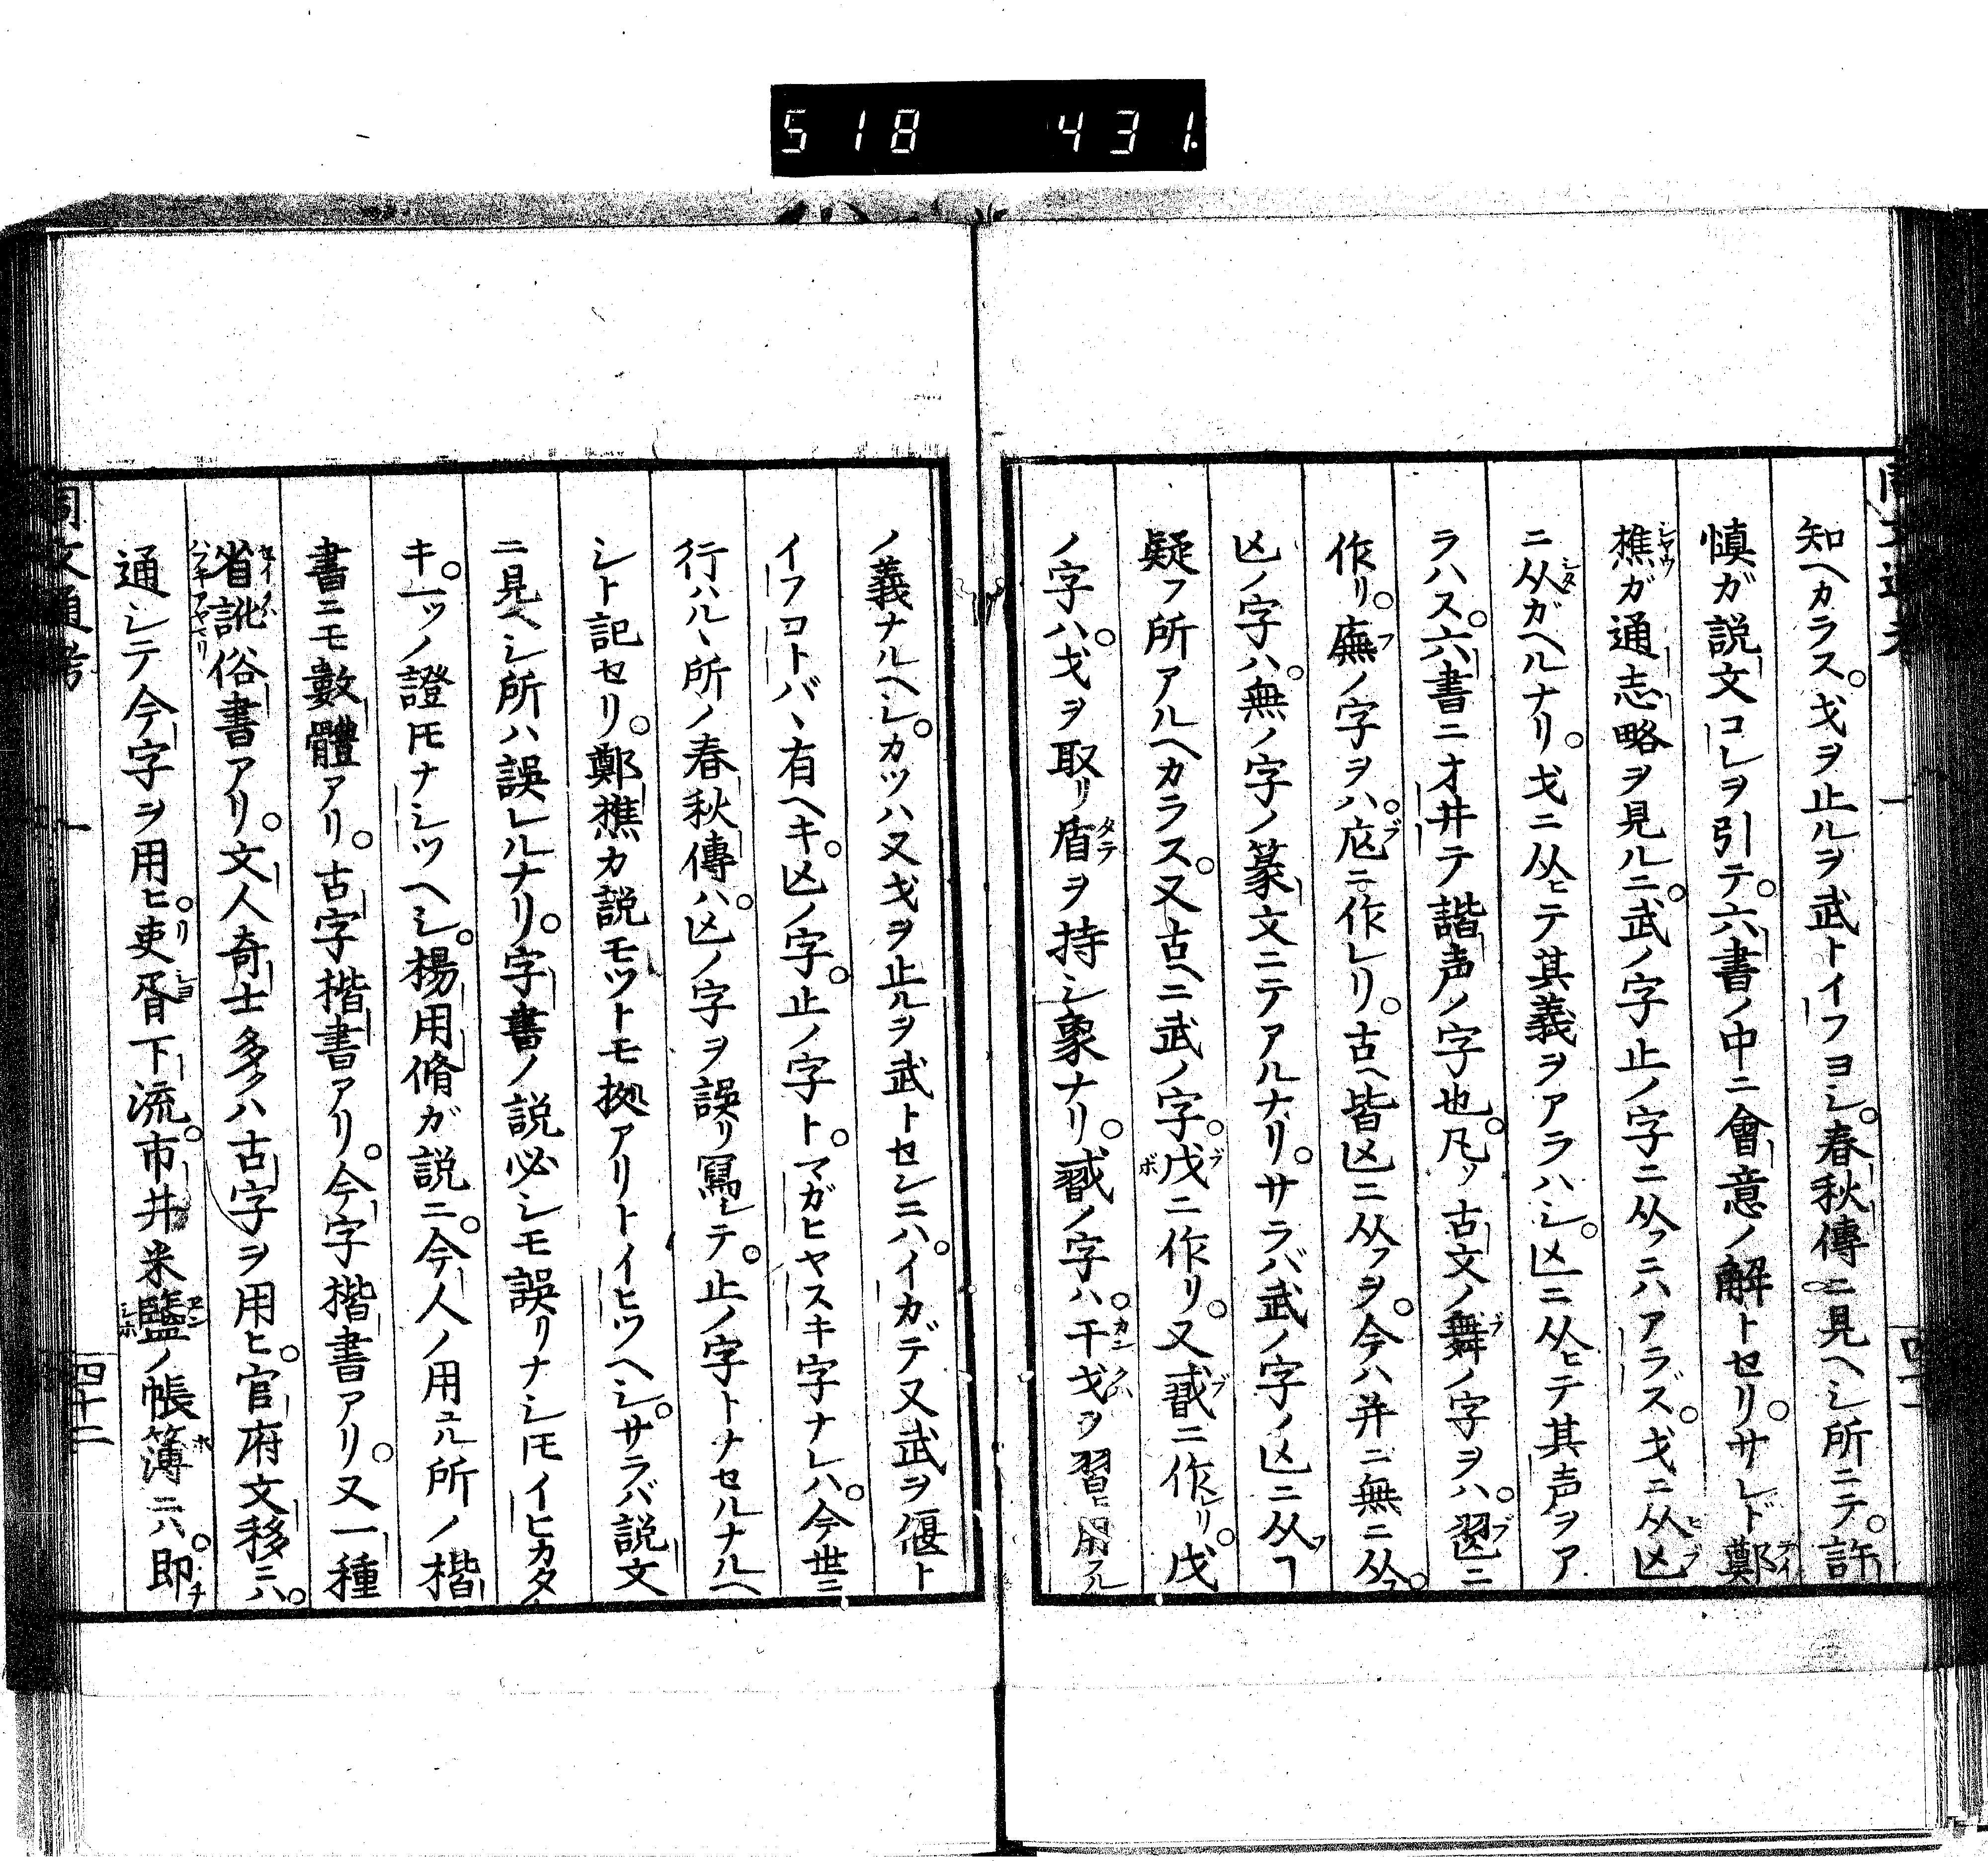 518 431
知ヘカラス。戈ヲ止ルヲ武トイフヨシ。春秋傳ニ見ヘシ所ニテ。許
慎ガ説文コレヲ引テ。六書ノ中ニ會意ノ解トセリ。サレド鄭
樵ガ通志略ヲ見ルニ。武ノ字止ノ字ニ从フニハアラズ。戈ニ从ヒ亾
ニ从ガヘルナリ。戈ニ从ヒテ其義ヲアラハシ。亾ニ从ヒテ其声ヲア
ラハス。六書ニオ井テ諧声ノ字也。凡ソ古文ノ舞ノ字ヲハ。𦐀ニ
作リ。廡ノ字ヲハ。㡆ニ作レリ。古ヘ皆亾ニ从フヲ。今ハ并ニ無ニ从フ。
亾ノ字ハ。無ノ字ノ篆文ニテアルナリ。サラバ武ノ字ノ亾ニ从フヿ
疑フ所アルヘカラス。又古ヘニ武ノ字。戊ニ作リ。又戩ニ作レリ。戊
ノ字ハ。戈ヲ取リ盾ヲ持シ象ナリ。ノ字ハ。干戈ヲ習ヒ用フル
ノ義ナルヘシ。カツハ又戈ヲ止ルヲ武トセシニハ。イカデ又武ヲ偃ト
イフコトバヽ有ヘキ。亾ノ字。止ノ字ト。マガヒヤスキ字ナレハ。今世ニ
行ハルヽ所ノ春秋傳ハ。亾ノ字ヲ誤リ寫シテ。止ノ字トナセルナルヘ
シト記セリ。鄭樵カ説モツトモ拠アリトイヒツヘシ。サラバ説文
ニ見ヘシ所ハ誤レルナリ。字書ノ説必シモ誤リナシ𪜈イヒカタ
キ。一ツノ證𪜈ナシツヘシ。楊用脩ガ説ニ。今人ノ用ユル所ノ楷
書ニモ數體アリ。古字楷書アリ。今字楷書アリ。又一種
省訛俗書アリ。文人奇士多クハ古字ヲ用ヒ。官府文移ニハ。
通シテ今字ヲ用ヒ。吏胥下流。市井米鹽ノ帳簿ニハ。即チ
同文通考 一 四十二